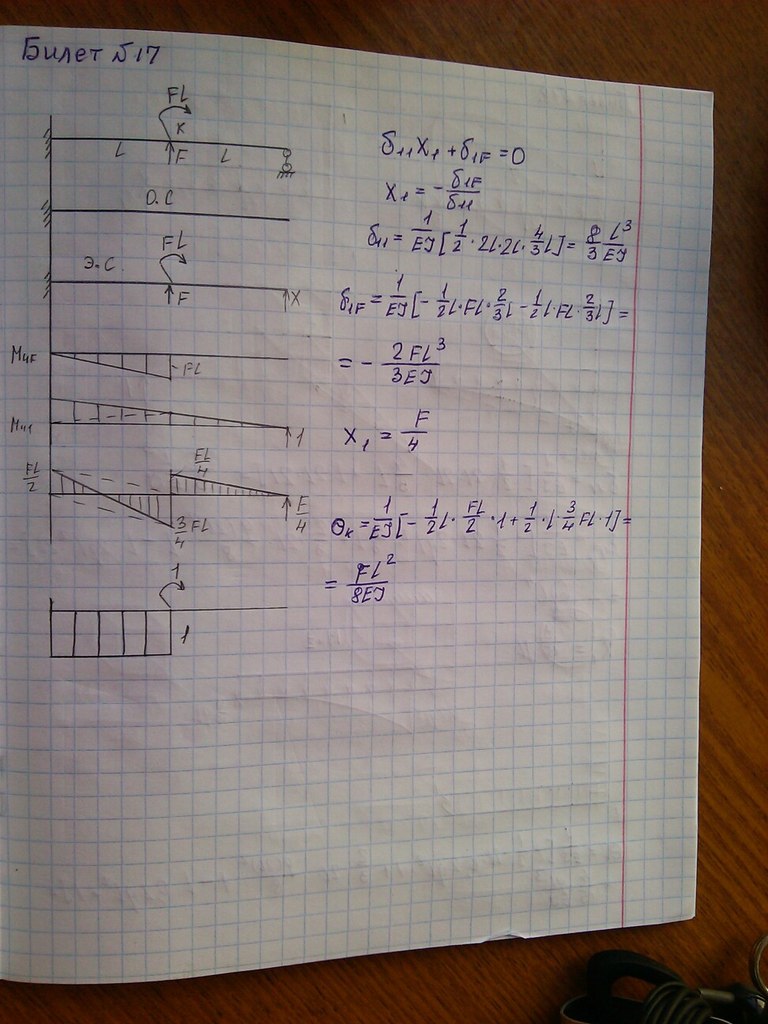 Билет №17
FL
K
L F L
О.С
FL
Э.С.
F X
M₄F
-FL
M₄₁
1
FL/2
FL/4
3/4 FL
F/4
1
1
δ₁₁X₁ + δ₁F = 0
X₁ = - δ₁F/δ₁₁
δ₁₁ = 1/EJ [1/2 · 2l · 2l · 4/3 l] = 8/3 l³/EJ
δ₁F = 1/EJ [- 1/2 l · FL · 2/3 l - 1/2 l · FL · 2/3 l] =
= - 2FL³/3EJ
X₁ = F/4
Θк = 1/EJ [- 1/2 l · FL/2 · 1 + 1/2 · l · 3/4 FL · 1] =
= FL²/8EJ